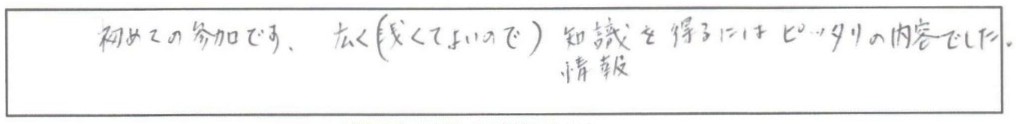 初めての参加です、広く(浅くてよいので)知識を得るにはピッタリの内容でした。
情報